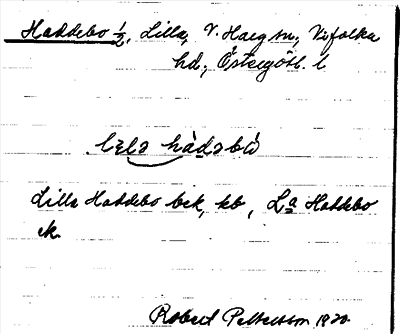 Haddebo ½, Lilla, V. Harg sn, Vifolka
hd; Östergötl. l
lɛlə hàdəbὼ
Lilla Haddebo bek, kb, La Haddebo
ek.
Robert Pettersson 19